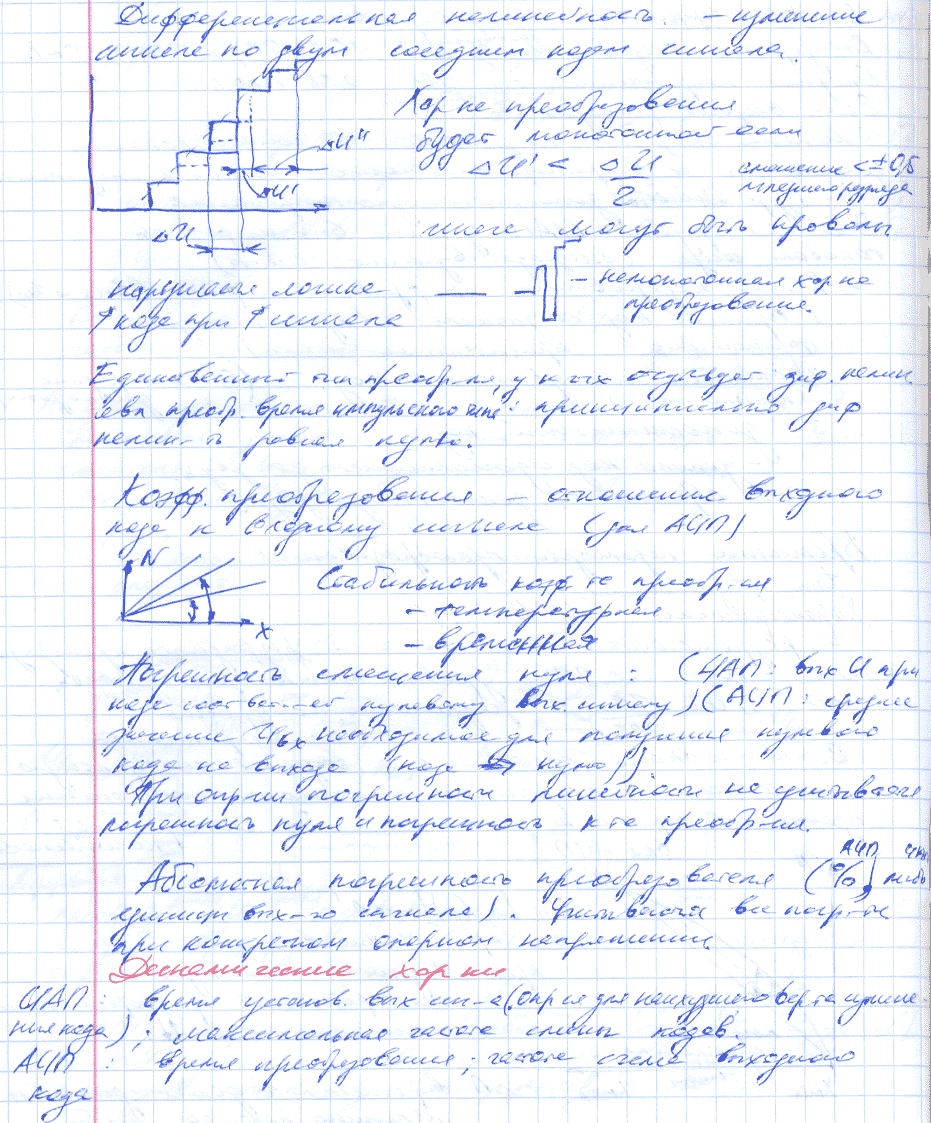 Дифференциальная нелинейность. – изменение
сигнала по двум соседним кодам сигнала.
Хар-ка преобразования
будет монотонной если
ΔU' < ΔU/2
смещение < ±0,5
младшего разряда
ΔU"
ΔU'
ΔU
иначе могут быть провалы
нарушается логика
↑ кода при ↑ сигнала
– немонотонная хар-ка
преобразования.
Единственный тип преобр-ля, у к-ых отсутствует диф. нелин.
явл преобр. время импульсного типа: принципиально диф
нелин-ть равная нулю.
Коэфф. преобразования – отношение выходного
кода к входному сигналу (для АЦП)
N
X
Стабильность коэф-та преобр-ия
– температурная
– временная
Погрешность смещения нуля : (ЦАП: вых U при
коде соответ-ет нулевому вых. сигналу) (АЦП: среднее
значение Uвх необходимое для получения нулевого
кода на выходе (коде нуля))
При опр-ии погрешности линейности не учитывается
погрешность нуля и погрешность к-та преобр-ия.
АЦП ЦАП
Абсолютная погрешность преобразователя (%, либо
единицы вых-го сигнала). Учитываются все погр-ти
при конкретном опорном напряжении
Динамические хар-ки
ЦАП: время установ. вых сиг-а (опр-ся для наихудшего вар-та измене-
ния кода); максимальная частота смены кодов.
АЦП: время преобразования; частота смены выходного
кода